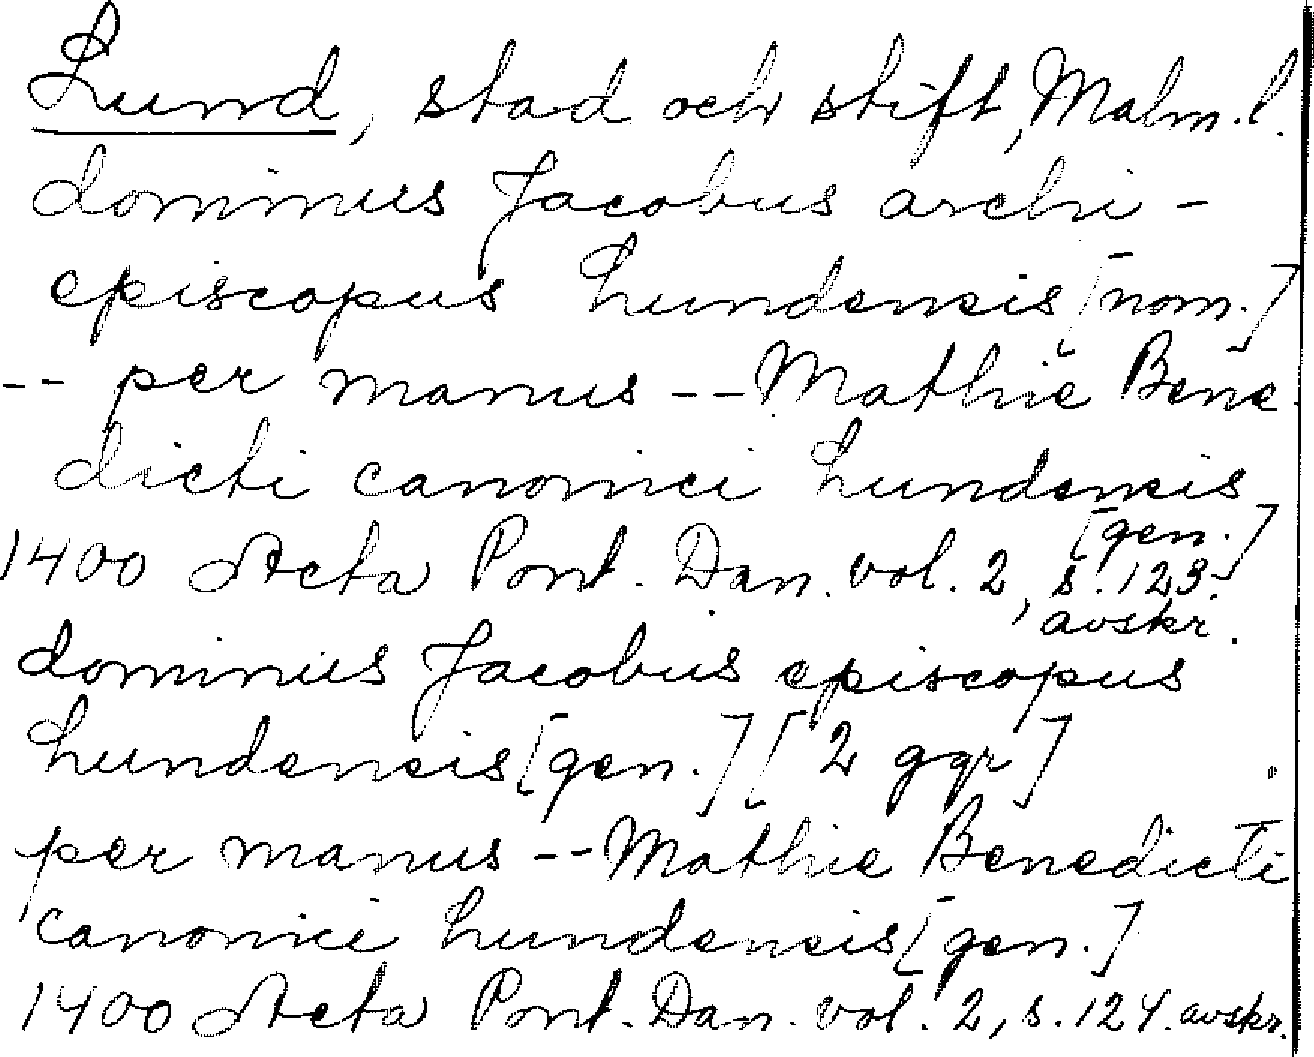 Lund, stad och stift, Malm.l.
dominus Jacobus archi-
episcopus Lundensis [nom.]
-- per manus -- Mathie Bene
dicti canonici Lundensis
[gen.]
1400 Acta Pont. Dan. vol. 2, s. 123.
avskr.
dominus Jacobus episcopus
Lundensis [gen.] [2 ggr]
per manus -- Mathie Benedicti
canonici Lundensis [gen.]
1400 Acta Pont. Dan. vol. 2, s. 124. avskr.